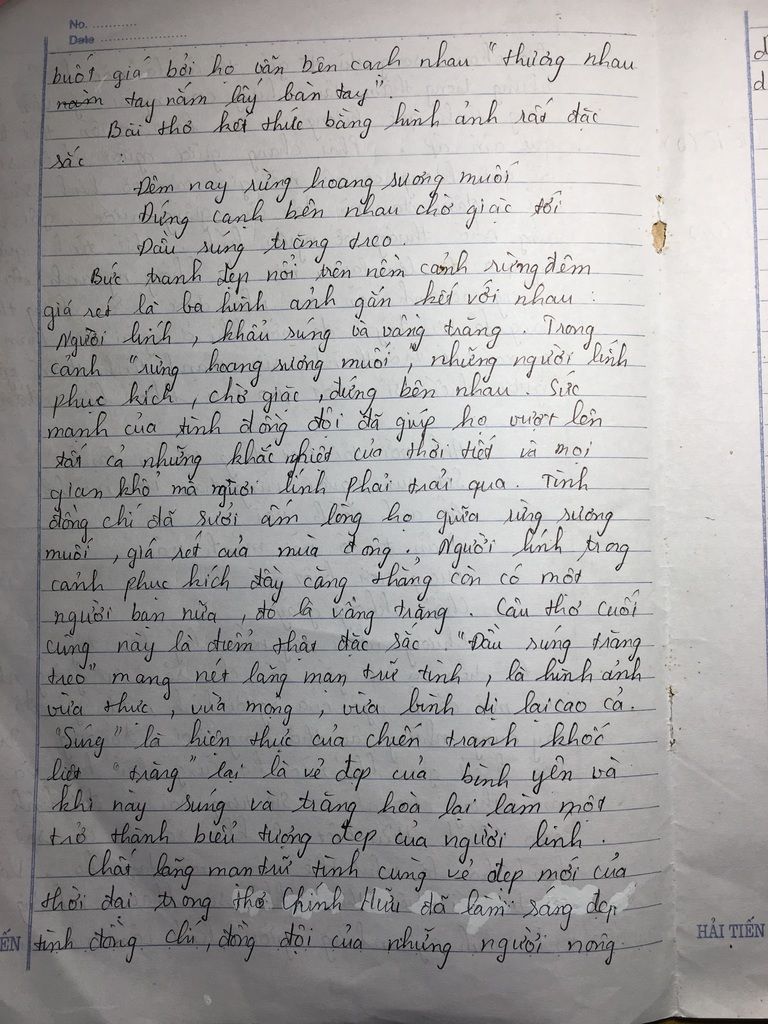 No. ...........
Date ......................
buốt giá bởi họ vẫn bên cạnh nhau "thương nhau
nắm tay nắm lấy bàn tay".
Bài thơ kết thúc bằng hình ảnh rất đặc
sắc :
Đêm nay rừng hoang sương muối
Đứng cạnh bên nhau chờ giặc tới
Đầu súng trăng treo.
Bức tranh đẹp nổi trên nềm cảnh rừng đêm
giá rét là ba hình ảnh gắn kết với nhau :
Người lính, khẩu súng và vầng trăng. Trong
cảnh "rừng hoang sương muối", những người lính
phục kích, chờ giặc, đứng bên nhau. Sức
mạnh của tình đồng đội đã giúp họ vượt lên
tất cả những khắc nghiệt của thời tiết và mọi
gian khổ mà người lính phải trải qua. Tình
đồng chí đã sưởi ấm lòng họ giữa rừng sương
muối, giá rét của mùa đông. Người lính trong
cảnh phục kích đầy căng thẳng còn có một
người bạn nữa, đó là vầng trăng. Câu thơ cuối
cùng này là điểm thật đặc sắc. "Đầu súng trăng
treo" mang nét lãng mạn trữ tình, là hình ảnh
vừa thực, vừa mộng, vừa bình dị lại cao cả.
"Súng" là hiện thực của chiến tranh khốc
liệt "trăng" lại là vẻ đẹp của bình yên và
khi này súng và trăng hòa lại làm một
trở thành biểu tượng đẹp của người lính.
Chất lãng mạn trữ tình cùng vẻ đẹp mới của
thời đại trong thơ Chính Hữu đã làm sáng đẹp
tình đồng chí, đồng đội của những người nông
ẾN
HẢI TIẾN